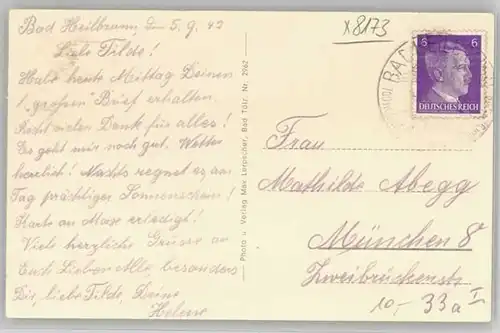 Bad Heilbrunn, den 5.9.42
Liebe Tilde!
Habe heute Mittag Deinen
"großen" Brief erhalten.
Recht vielen Dank für alles!
Es geht mir noch gut. Wetter
herrlich! Nachts regnet es am
Tag prächtiger Sonnenschein!
Karte an Maxe erledigt!
Viele herzliche Grüsse an
Euch Lieben Alle besonders
Dir, liebe Tilde, Deine
Helene
Photo u. Verlag Max Lerpscher, Bad Tölz, Nr. 2962
x8173
6 6
DEUTSCHES REICH
BAD
Frau
Mathilde Abegg
München 8
Zweibrückenstr.
33a I
10,-